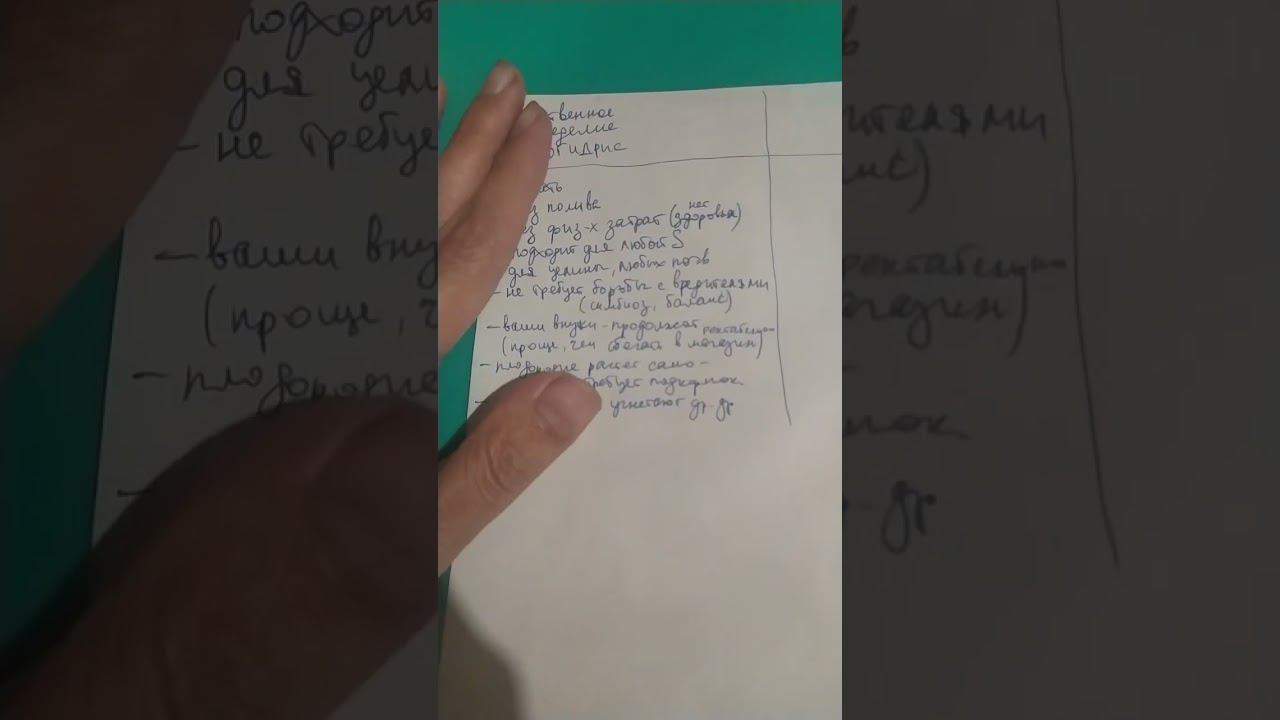 ственное
еделие
ОГИДРИС
ать
ез полива
ез физ-х затрат (нет здоровья)
подходит для любой S
для целины, любых почв
- не требует борьбы с вредителями
(симбиоз, баланс)
- ваши внуки - продолжат
(проще, чем сбегать в магазин)
- плодородие растёт само -
требует подкормок
угнетают др. др